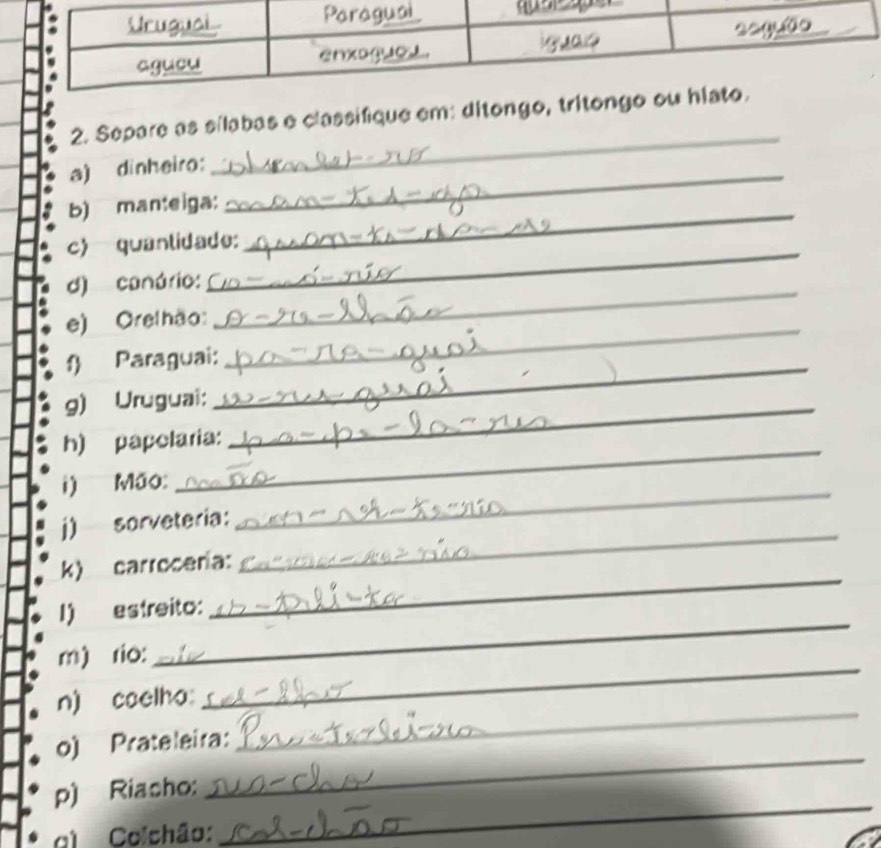 Uruguai Paraguai
aguou enxaguou iguais saguão
2. Separe as sílabas e classifique em: ditongo, tritongo ou hiato.
a) dinheiro:
b) manteiga: man-tei-ga
c) quantidade: quan-ti-da-de
d) canário: ca-ná-rio
e) Orelhão: O-re-lhão
f) Paraguai: pa-ra-guai
g) Uruguai: u-ru-guai
h) papelaria: pa-pe-la-ria
i) Mão: mão
j) sorveteria:
k) carroceria:
l) estreito:
m) rio: rio
n) coelho:
o) Prateleira:
p) Riacho: ria-cho
q) Colchão: Col-chão